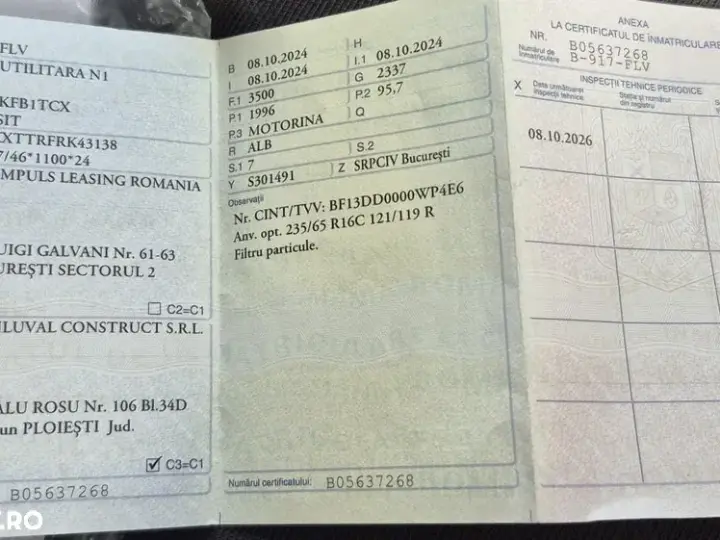 FLV
UTILITARA N1
KFB1TCX
SIT
XTTRFRK43138
7/46*1100*24
MPULS LEASING ROMANIA
UIGI GALVANI Nr. 61-63
UREȘTI SECTORUL 2
C2=C1
ILUVAL CONSTRUCT S.R.L.
ALU ROSU Nr. 106 Bl.34D
un PLOIEȘTI Jud.
C3=C1
B05637268
.RO
B 08.10.2024 H
I 08.10.2024 I.1 08.10.2024
F.1 3500 G 2337
P.1 1996 P.2 95,7
P.3 MOTORINA Q
R ALB
S.1 7 S.2
Y S301491 Z SRPCIV București
Observații
Nr. CINT/TVV: BF13DD0000WP4E6
Anv. opt. 235/65 R16C 121/119 R
Filtru particule.
Numărul certificatului: B05637268
ANEXA
LA CERTIFICATUL DE ÎNMATRICULARE
NR. B05637268
Numărul de înmatriculare B-917-FLV
INSPECȚII TEHNICE PERIODICE
X Data următoarei inspecții tehnice
Stația și numărul din registru
S
08.10.2026